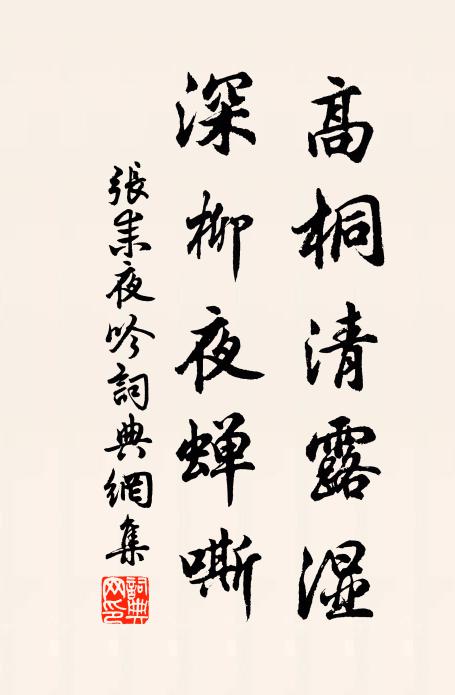 高桐清露湿
深柳夜蝉嘶
張耒夜吟詞典網集
詞典網印